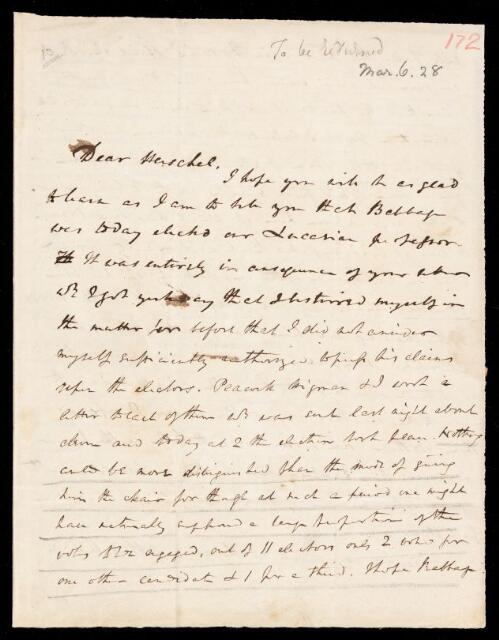 172
To be returned
Mar. 6. 28
Dear Herschel.
I hope you will be as glad
to hear as I am to tell you that Babbage
was today elected our Lucasian professor
It was entirely in consequence of your letter
wh I got yesterday that I bestirred myself in
the matter for before that I did not consider
myself sufficiently authorized to press his claims
upon the electors. Peacock & I wrote a
letter to each of them wh was sent last night about
eleven and today at 2 the election took place. Nothing
could be more distinguished than the mode of giving
him the chair for though at such a period one might
have naturally supposed a large proportion of the
votes to be engaged, out of 11 electors only 2 votes for
one other candidate & 1 for a third. I hope Babbage